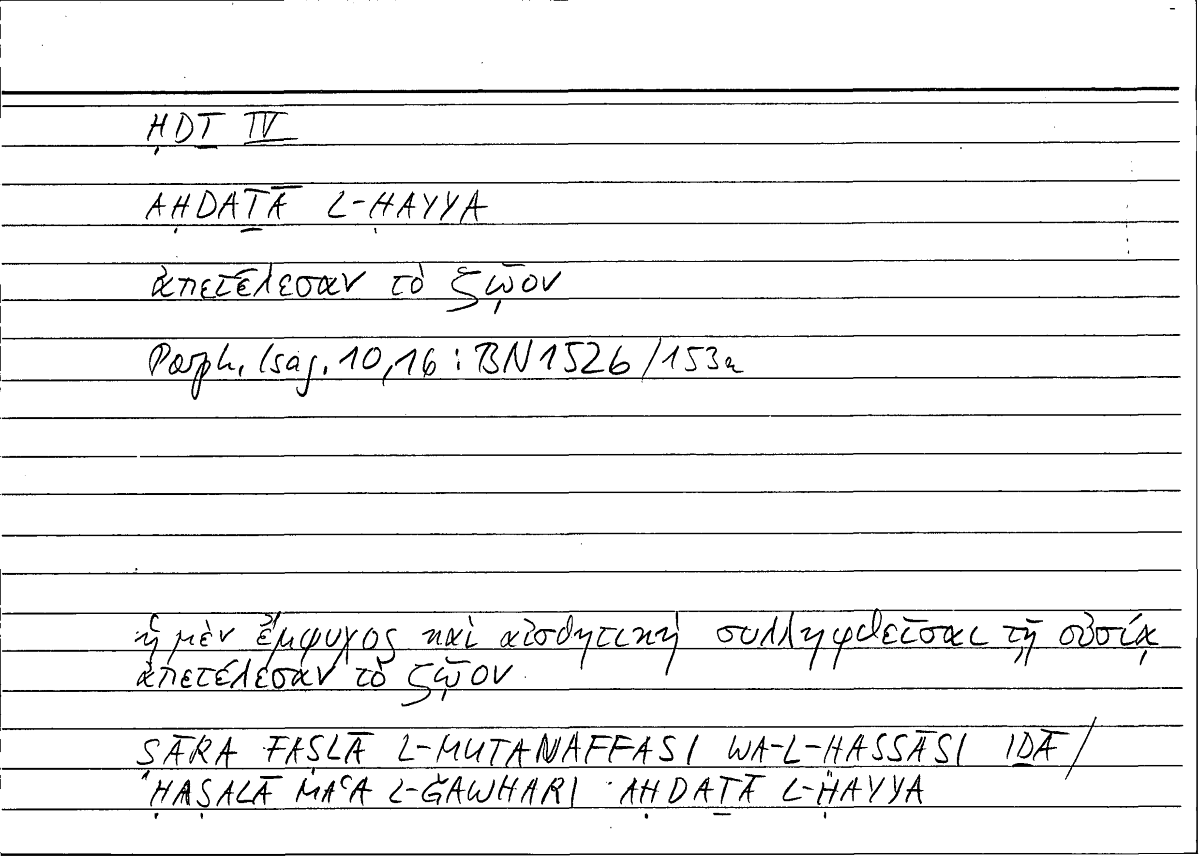 ḤDṮ IV
AḤDAṮĀ L-ḤAYYA
ἀπετέλεσαν τὸ ζῷον
Porph. Isag. 10,16 : BN 1526/153a
ἡ μὲν ἔμψυχος καὶ αἰσθητικὴ συλληφθεῖσαι τῇ οὐσίᾳ
ἀπετέλεσαν τὸ ζῷον
SĀRA FAṢLĀ L-MUTANAFFASI WA-L-HASSĀSI IḎĀ/
ḤAṢALĀ MAʿA L-ǦAWHARI AḤDAṮĀ L-ḤAYYA